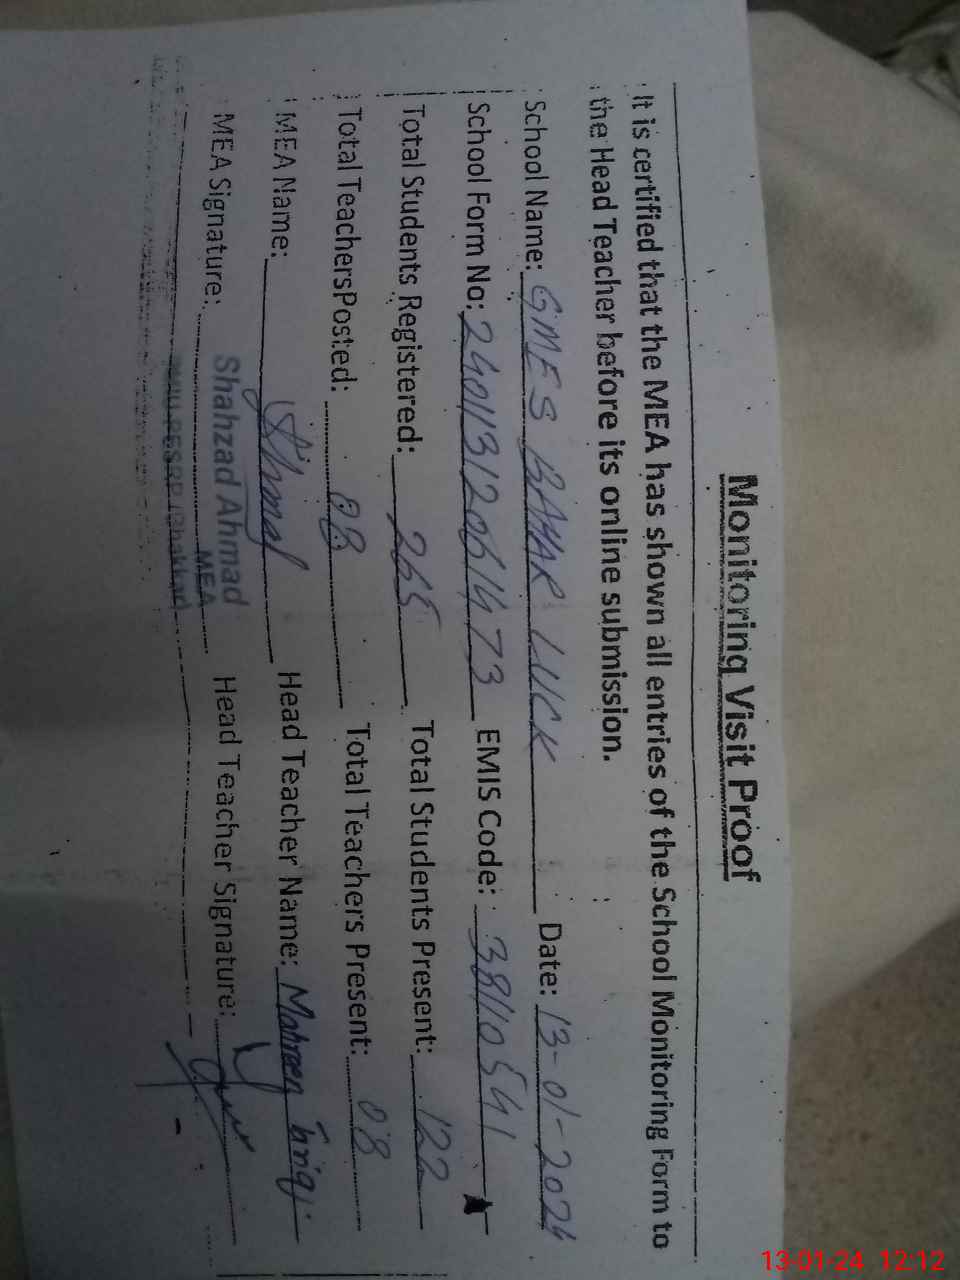 Monitoring Visit Proof
It is certified that the MEA has shown all entries of the School Monitoring Form to
the Head Teacher before its online submission.
School Name: GMES Date: 13-01-2024
School Form No: 24011312061473 EMIS Code: 38110541
Total Students Registered: 265 Total Students Present: 122
Total TeachersPosted: 08 Total Teachers Present: 08
MEA Name: Head Teacher Name: Mahreen
MEA Signature: Shahzad Ahmad Head Teacher Signature:
MEA
13-01-24 12:12